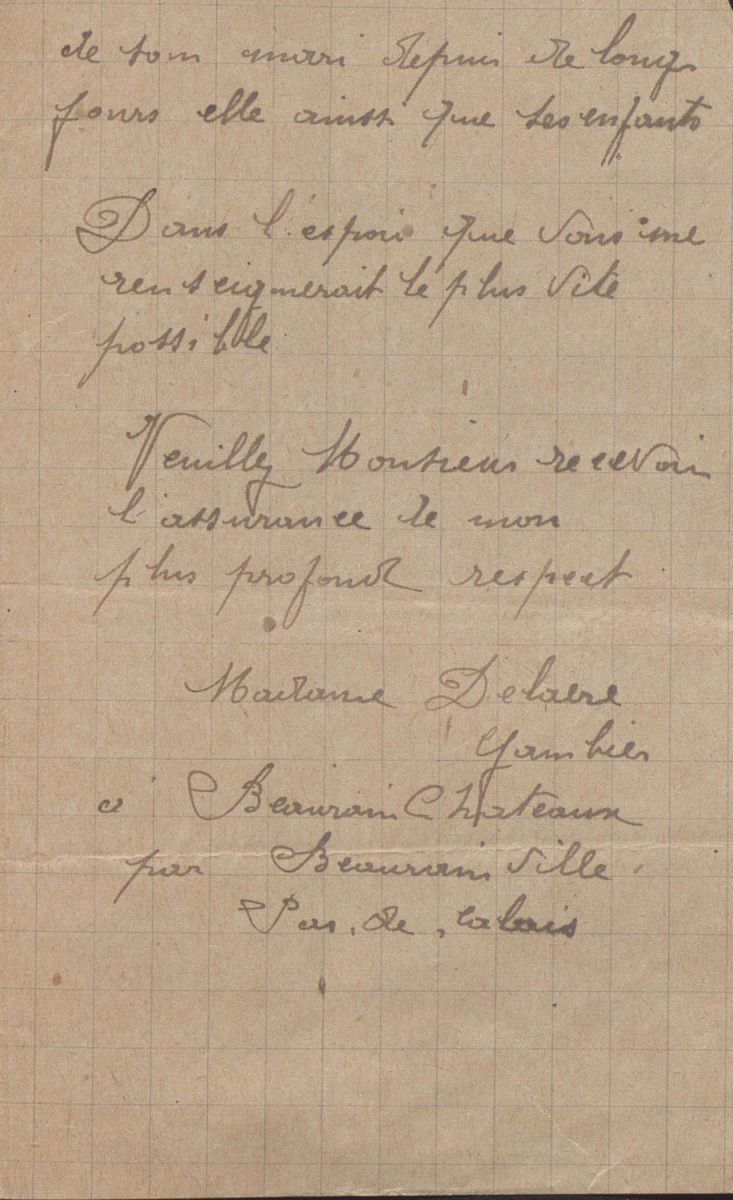 de son mari depuis de longs
jours elle ainsi que ses enfants
Dans l'espoir que vous me
renseignerait le plus vite
possible
Veuillez Monsieur recevoir
l'assurance de mon
plus profond respect
Madame Delaere
Gambier
a Beaurain Chateaux
par Beaurainville
Pas. de. Calais